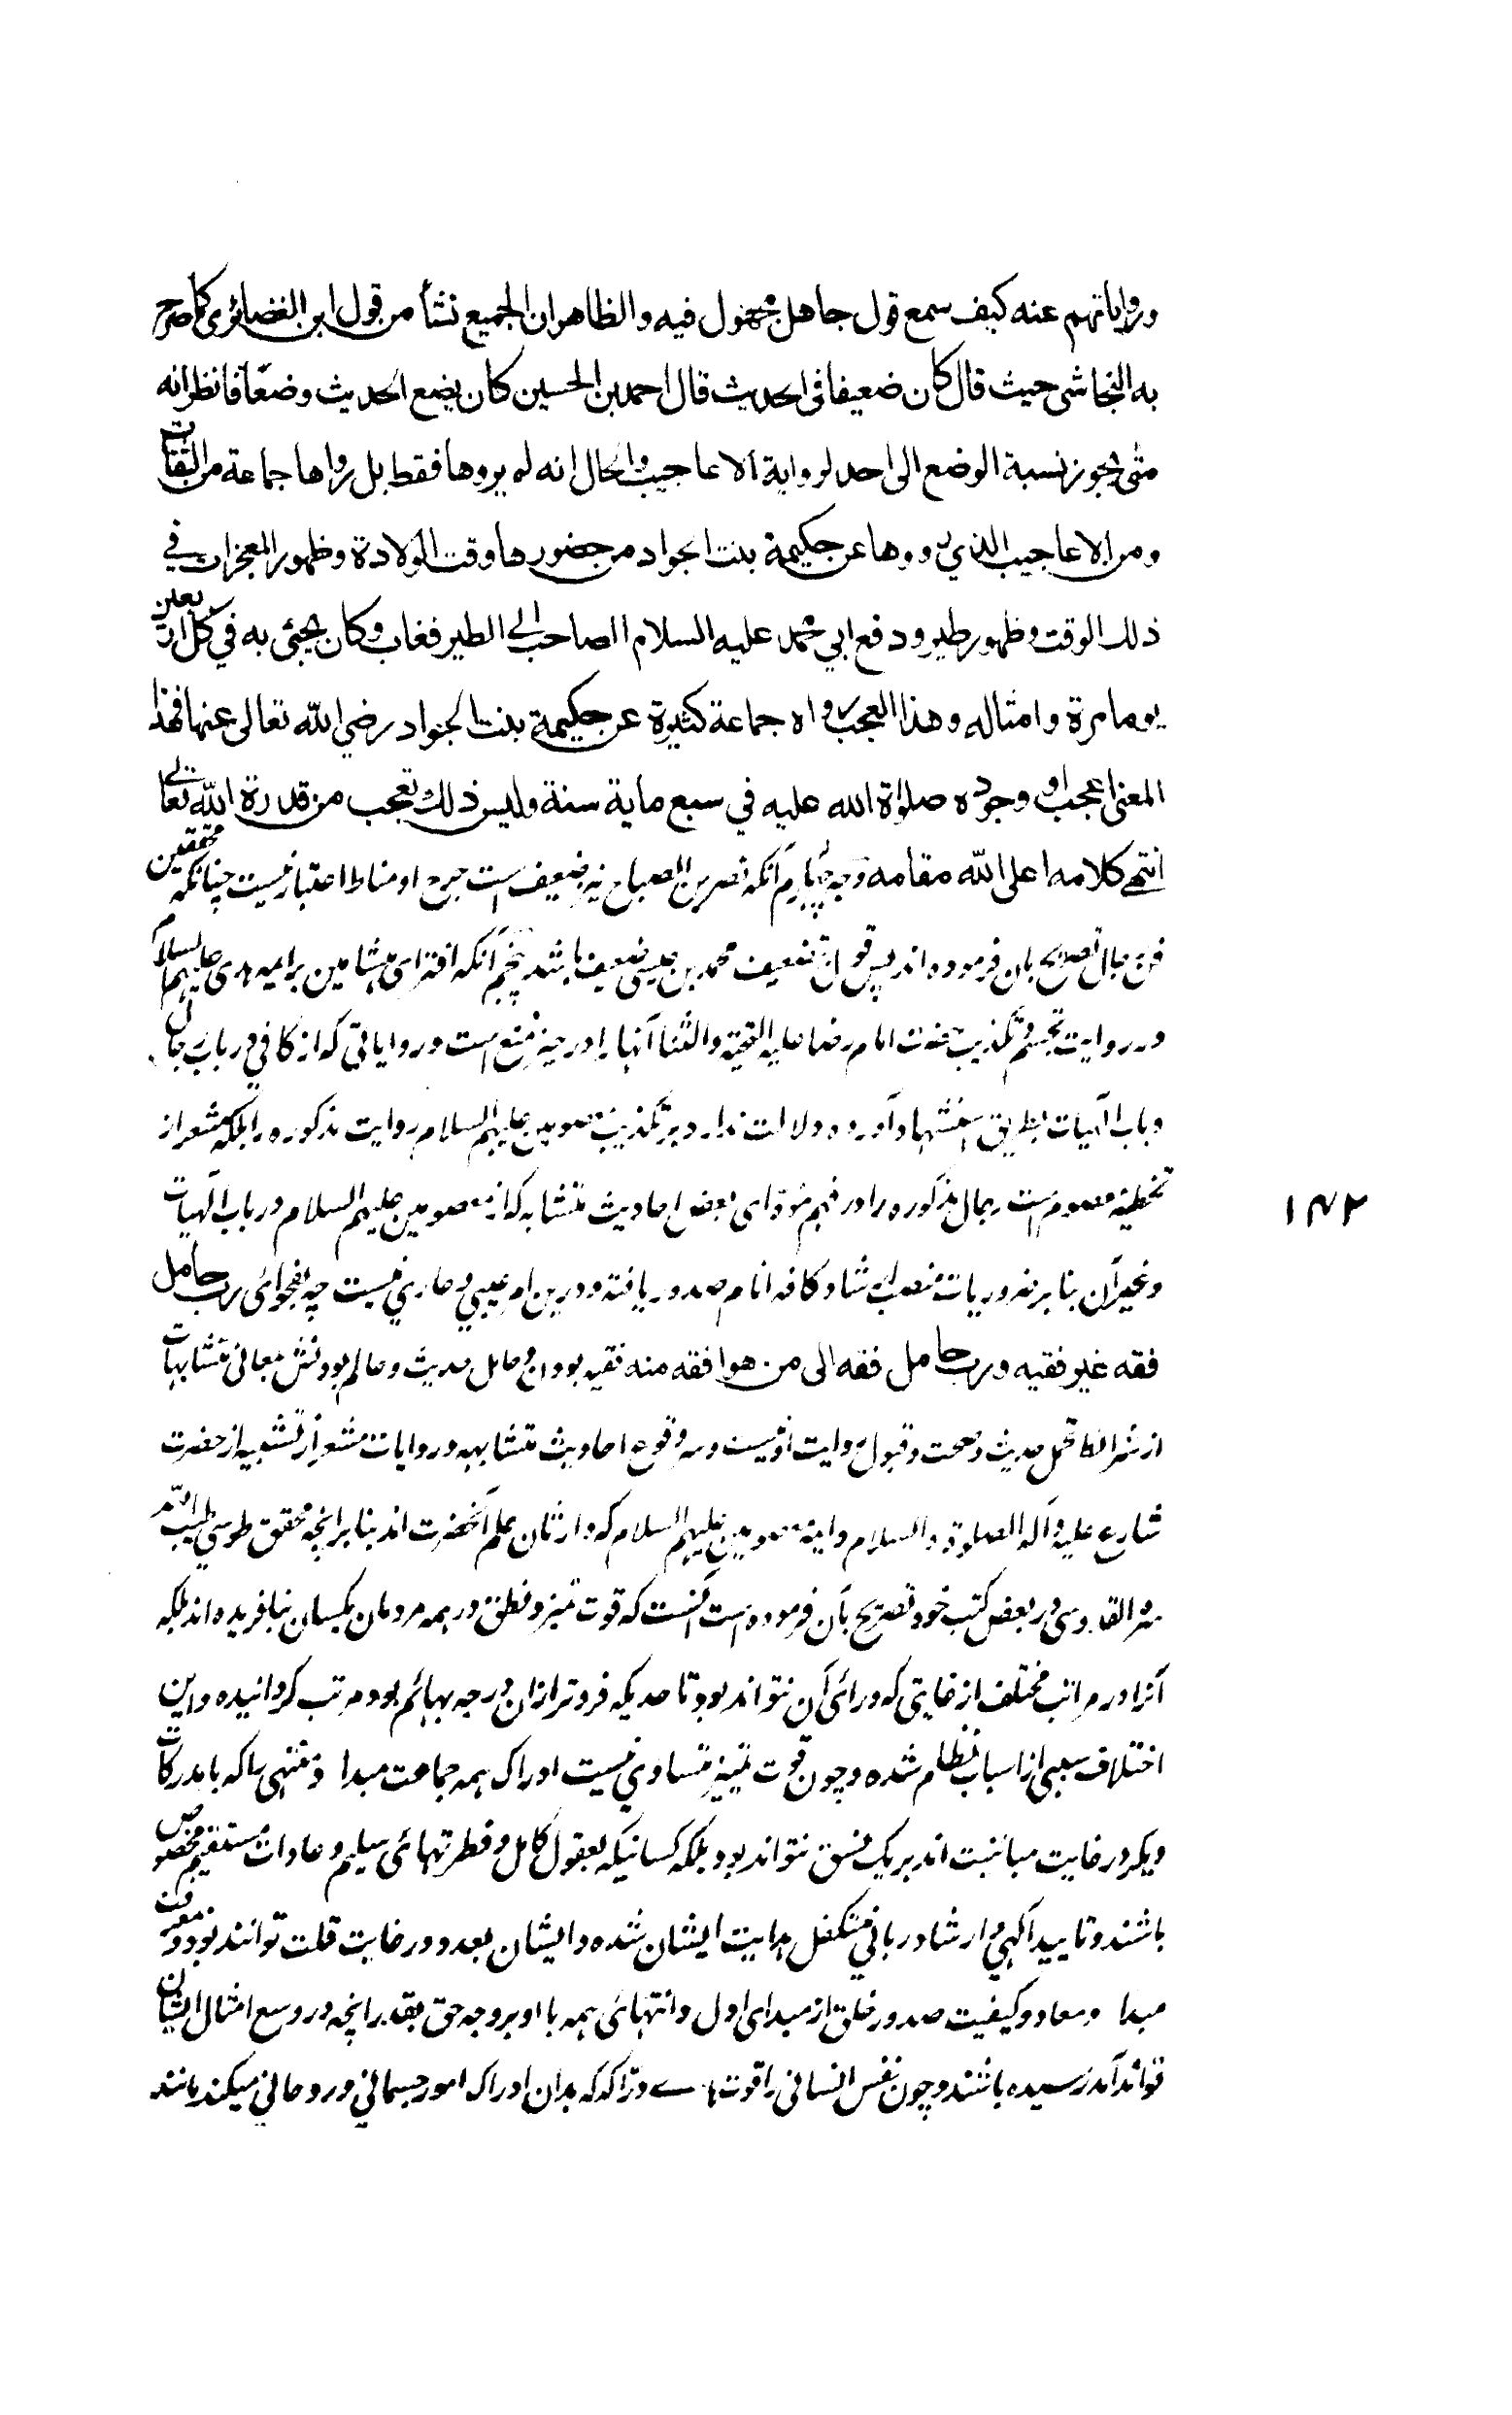 ورواياتهم عنه كيف سمع قول جاهل مجهول فيه والظاهر ان الجميع نشأ من قول ابن الغضائرى كما صرح
به النجاشى حيث قال كان ضعيفا فى الحديث قال احمد بن الحسين كان يضع الحديث وضعًا فانظر انه
متى يجوز نسبة الوضع الى احد لرواية الاعاجيب والحال انه لم يروها فقط بل رواها جماعة من الثقات
ومن الاعاجيب الذي رووها عن حكيمة بنت الجواد من حضورها وقت الولادة وظهور المعجزات في
ذلك الوقت وظهور طيور ودفع ابي محمد عليه السلام الصاحب الى الطير فغاب وكان يجئ به في كل اربعين
يوما مرة وامثاله وهذا العجب رواه جماعة كثيرة عن حكيمة بنت الجواد رضي الله تعالى عنها فهذا
المعنى اعجب او وجوده صلواة الله عليه في سبع ماية سنة وليس ذلك تعجب من قدرة الله تعالى
انتهى كلامه اعلى الله مقامه وجه چهارم آنكه نصر بن الصباح نيز ضعيف است جرح او مناط اعتبار نيست چنانكه محققين
فن رجال تصريح بان فرموده اند پس قول او در تضعيف محمد بن عيسى ضعيف باشد پنجم آنكه افتراى هشامين بر ايمه هدى عليهم السلام
در روايت تجسم و تكذيب حضرت امام رضا عليه التحية والثنا آنها را در حيز منع است و رواياتى كه از كافي در باب رجال
و باب الهيات بطريق استشهاد آورده دلالت ندارد بر تكذيب معصومين عليهم السلام روايت مذكوره را بلكه مشعر از
تخطيه معصوم است رجال مذكوره را در فهم مؤداى بعض احاديث متشابه كه از معصومين عليهم السلام در باب الهيات
و غير آن بنا بر ضروريات منصب ارشاد كافه انام صدور يافته و درين امر عيبي و عاري نيست چه بفحواى رب حامل
فقه غير فقيه ورب حامل فقه الى من هو افقه منه فقيه بودن حامل حديث و عالم بودنش بمعانى متشابهات
از شرائط تحمل حديث و صحت و قبول روايت او نيست و سر وقوع احاديث متشابهه و روايات مشعر از تشبيه از حضرت
شارع عليه و آله الصلوة والسلام وايمه معصومين عليهم السلام كه وارثان علم آنحضرت اند بنا بر انچه محقق طوسي طيب الله
سره القدوسى در بعض كتب خود تصريح بآن فرموده است آنست كه قوت تميز و نطق در همه مردمان يكسان نيافريده اند بلكه
آنرا در مراتب مختلف از غايتى كه ورائى آن نتواند بود تا حديكه فروتر از ان درجه بهائم بود مرتب گردانيده و اين
اختلاف سببى از اسباب نظام شده و چون قوت تميز متساوي نيست ادراك همه جماعت مبدا و منتهى را كه با مدركات
ديگر در غايت مباينت اند بر يك نسق نتواند بود بلكه كسانيكه بعقول كامل و فطرتهائى سليم و عادات مستقيم مخصوص
باشند و تاييد الهي و ارشاد رباني متكفل هدايت ايشان شده و ايشان بعدد در غايت قلت توانند بود و معرفت
مبدا و معاد و كيفيت صدور خلق از مبداى اول و انتهائى همه با او بر وجه حق بقدر انچه در وسع امثال ايشان
تواند آمد رسيده باشند و چون نفس انسانى را قوت‌هاے درّاكه كه بدان ادراك امور جسماني و روحاني ميكند مانند
١٤٢